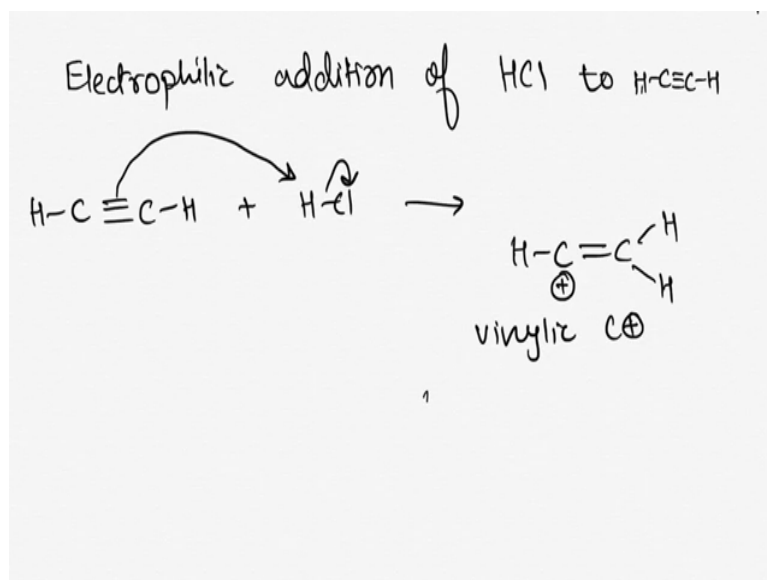 Electrophilic addition of HCl to H-C≡C-H
H-C≡C-H + H-Cl ⟶
H-C=C
H
H
⊕
vinylic C⊕